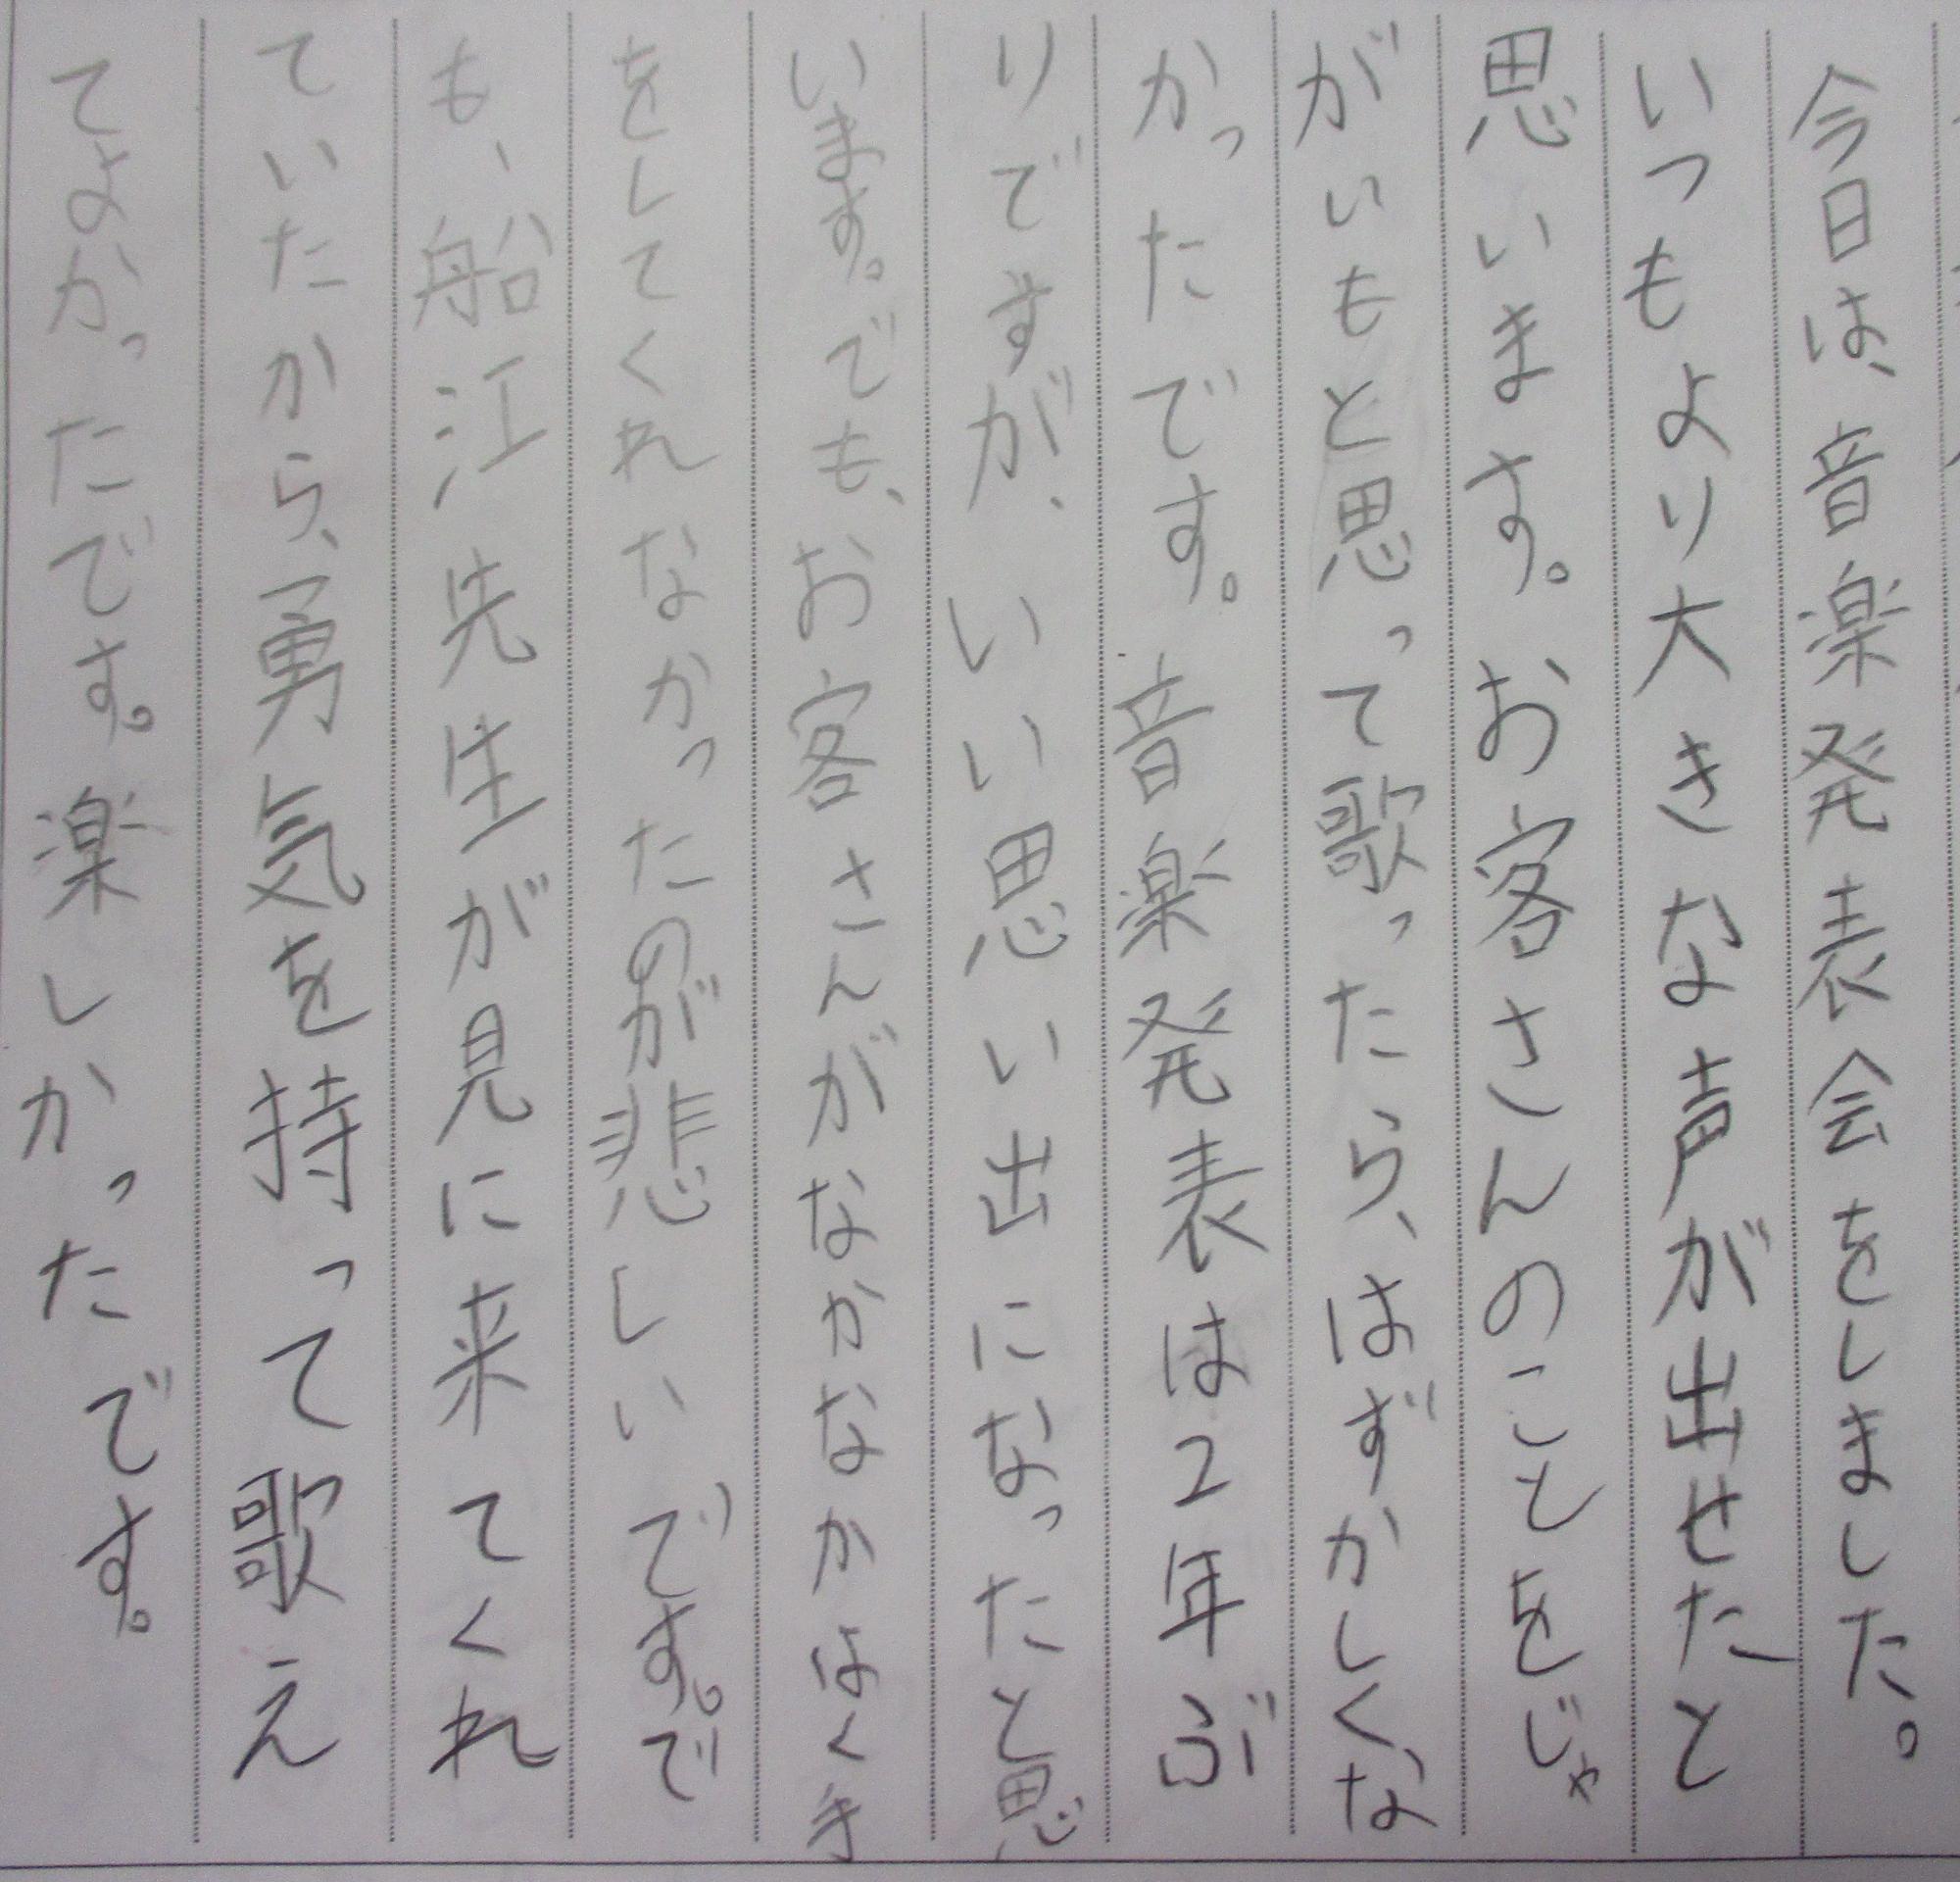 今日は、音楽発表会をしました。
いつもより大きな声が出せたと
思います。お客さんのことをじゃ
がいもと思って歌ったら、はずかしくな
かったです。音楽発表は2年ぶ
りですが、いい思い出になったと思
います。でも、お客さんがなかなかはく手
をしてくれなかったのが悲しいです。で
も、船江先生が見に来てくれ
ていたから、勇気を持って歌え
てよかったです。楽しかったです。